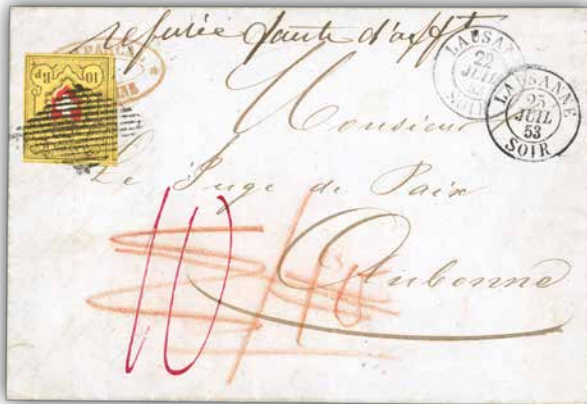 refusée faute d'afft
LAUSA
22
JUIL
53
SOIR
LAUSANNE
25
JUIL
53
SOIR
10 Rp
Monsieur
Le Juge de Paix
Aubonne
10